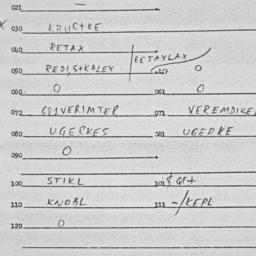 021 —
030 KRUCTKE
040 RETAX RETAXLAX
050 REDISTKALEX 051 O
060 O 061 O
070 071 VEREMDIKE
080 UGERKES 081 UGERKE
090 O
100 STIKL 101
110 KNOBL 111 -/KEPL
120 O